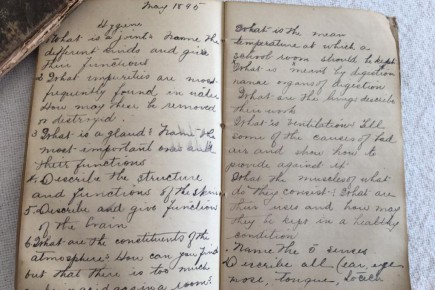 May 1895
Hygine
What is a joint? Name the
different kinds and give
their functions
2 What impurities are most
frequently found in water
How may these be removed
or destroyed.
3 What is a gland? Name the
most important ones and
their functions
4 Describe the structure
and functions of the skin
5. Describe and give functions
of the brain
6 What are the constituents of the
atmosphere? How can you find
out that there is too much
acid again a room?
What is the mean
temperature at which a
school room should be kept
What is meant by digestion
name organs of digestion
What are the lungs describe
their work
What is ventilation? Tell
some of the causes of bad
air and show how to
provide against it
What the muscles of what
do they consist? What are
their uses and how may
they be kept in a healthy
condition
Name the 5 senses
Describe all (ear, eye
nose, tongue,